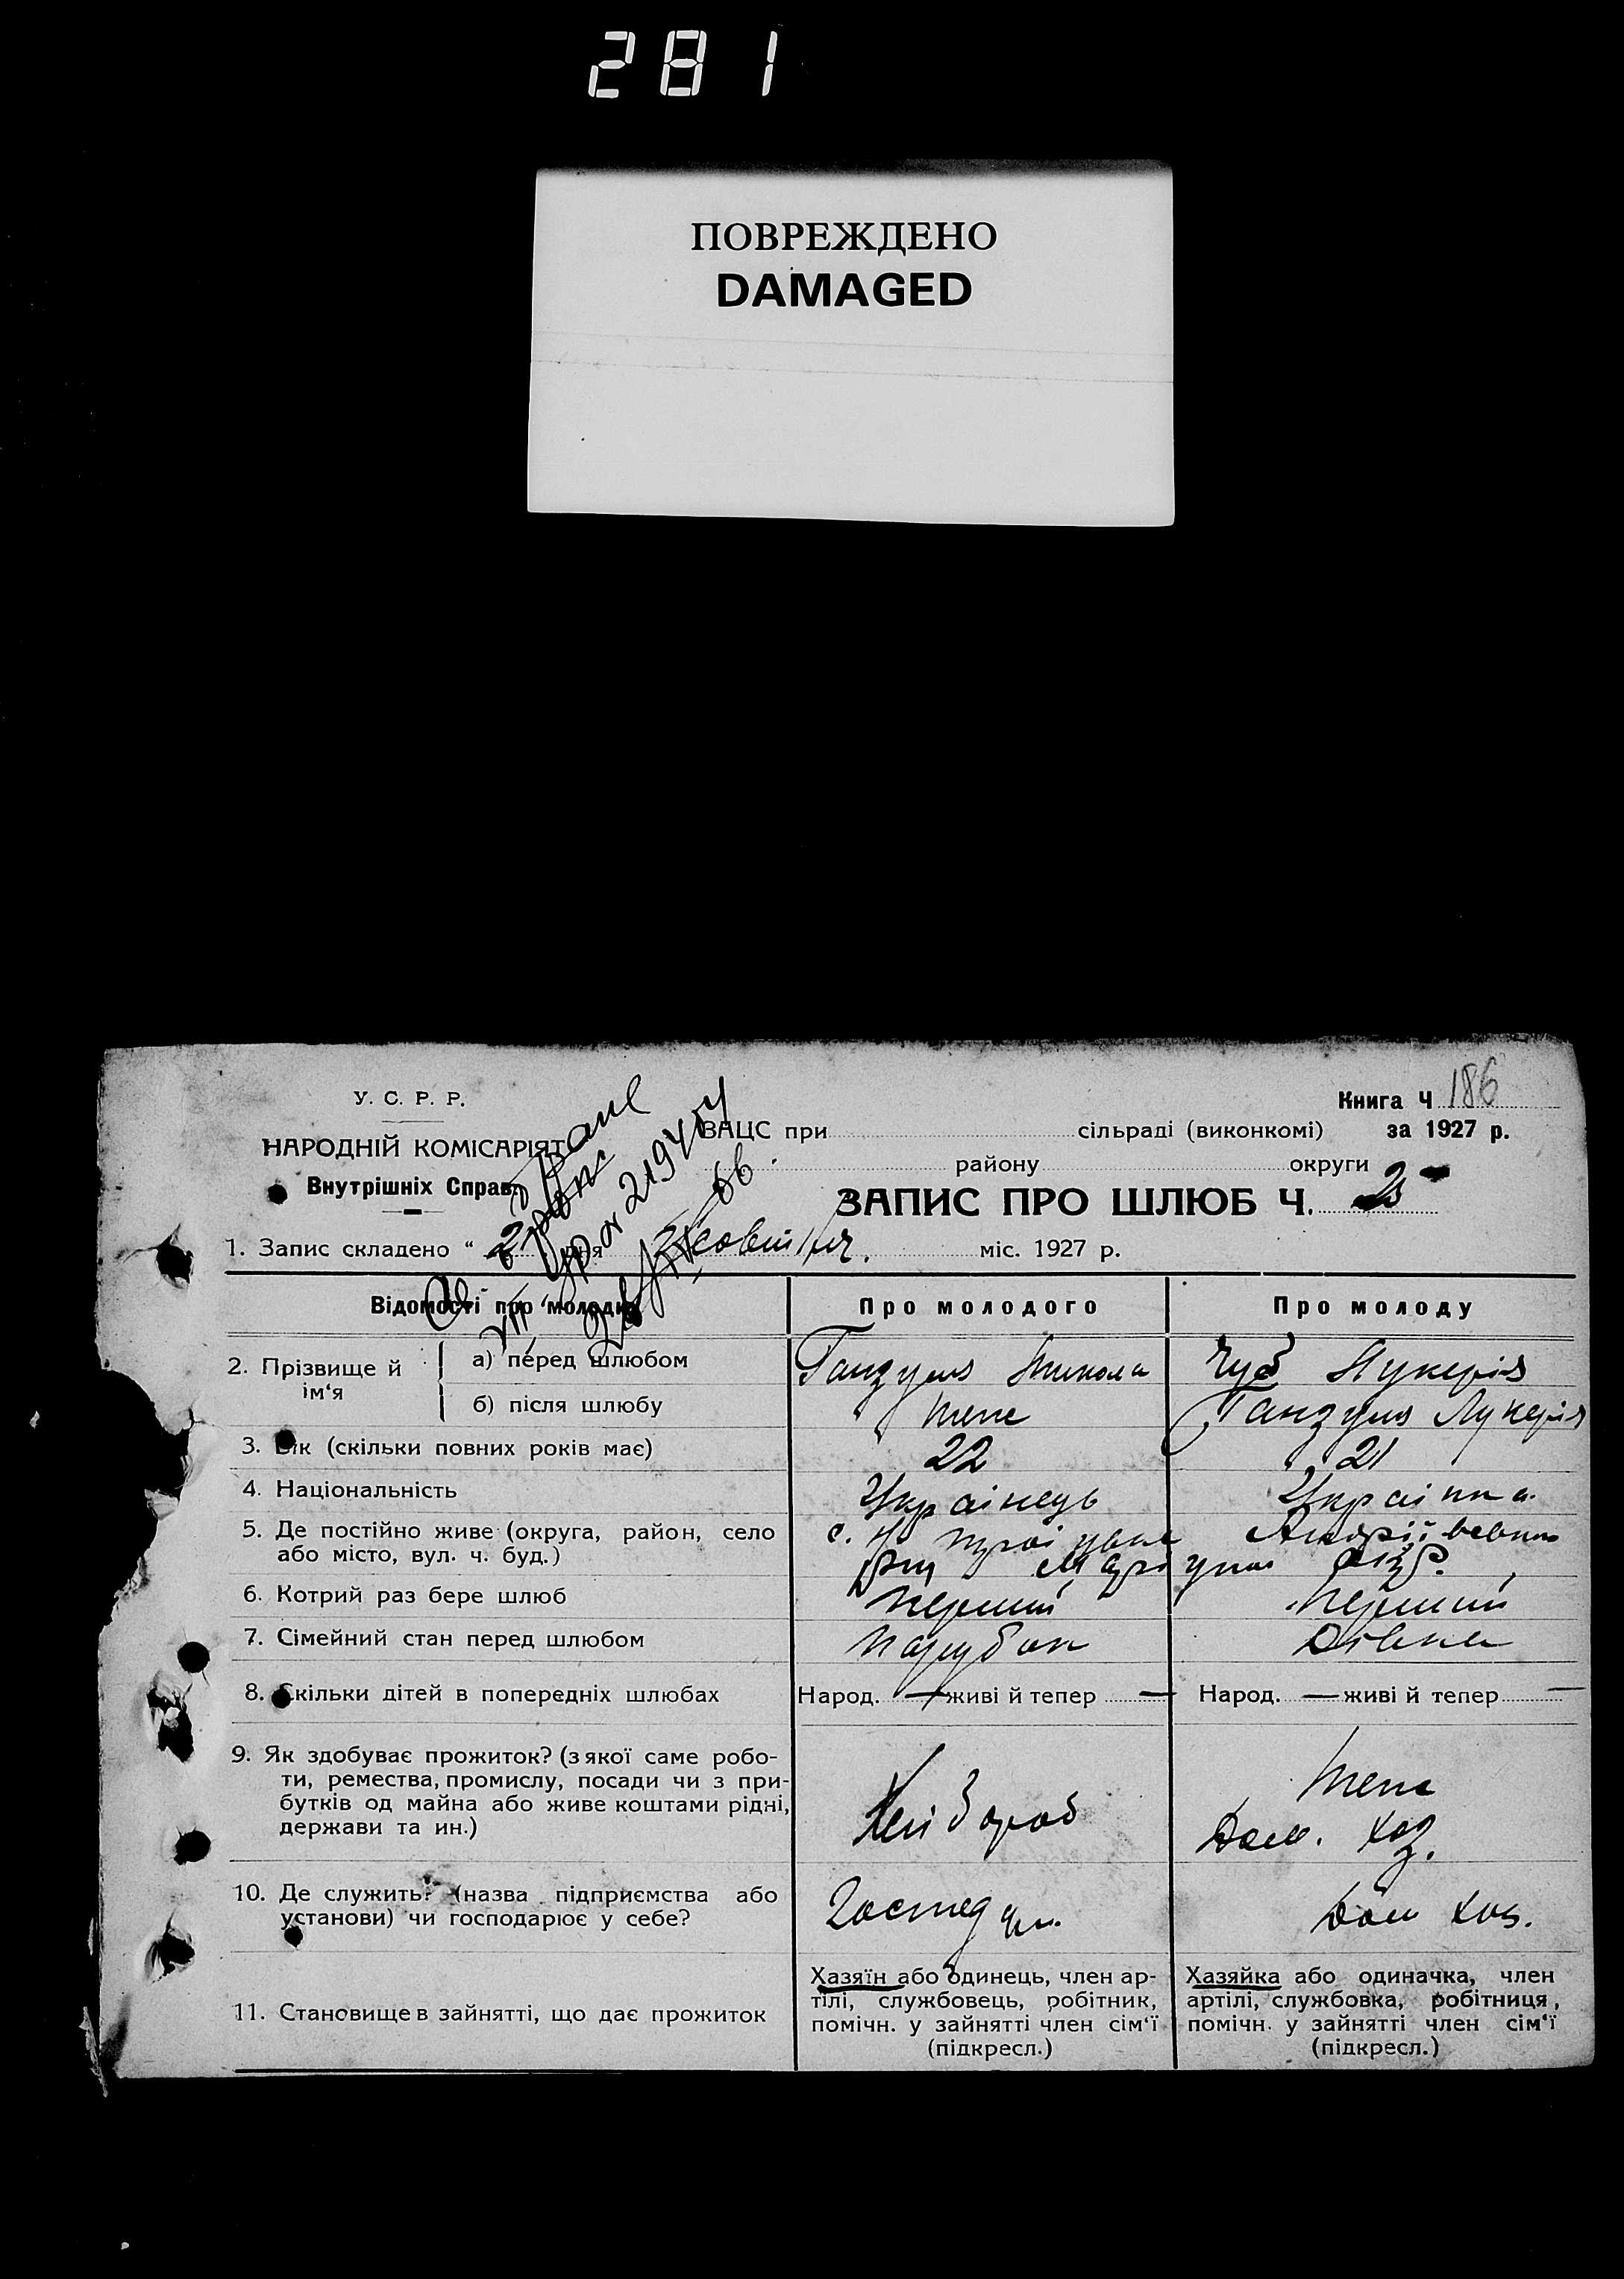 281
ПОВРЕЖДЕНО
DAMAGED
У. С. Р. Р.
НАРОДНІЙ КОМІСАРІЯТ
Внутрішніх Справ.
Книга Ч 186
ЗАЦС при сільраді (виконкомі) за 1927 р.
району округи
ЗАПИС ПРО ШЛЮБ Ч.
1. Запис складено “ 2 дня Жовтня міс. 1927 р.
Відомості про молодих
Про молодого
Про молоду
2. Прізвище й ім‘я
а) перед шлюбом
Гандуля Микола
Чуб Лукерія
б) після шлюбу
теж
Гандуля Лукерія
3. Вік (скільки повних років має)
22
21
4. Національність
Українець
Українка
5. Де постійно живе (округа, район, село
або місто, вул. ч. буд.)
с.
6. Котрий раз бере шлюб
перший
перший
7. Сімейний стан перед шлюбом
парубок
Дівка
8. Скільки дітей в попередніх шлюбах
Народ. — живі й тепер —
Народ. — живі й тепер —
9. Як здобуває прожиток? (з якої саме робо-
ти, ремества, промислу, посади чи з при-
бутків од майна або живе коштами рідні,
держави та ин.)
Хлібороб
теж
Дом. хоз.
10. Де служить? (назва підприємства або
установи) чи господарює у себе?
Дом хоз.
11. Становище в зайнятті, що дає прожиток
Хазяїн або одинець, член ар-
тілі, службовець, робітник,
помічн. у зайнятті член сім‘ї
(підкресл.)
Хазяйка або одиначка, член
артілі, службовка, робітниця,
помічн. у зайнятті член сім‘ї
(підкресл.)